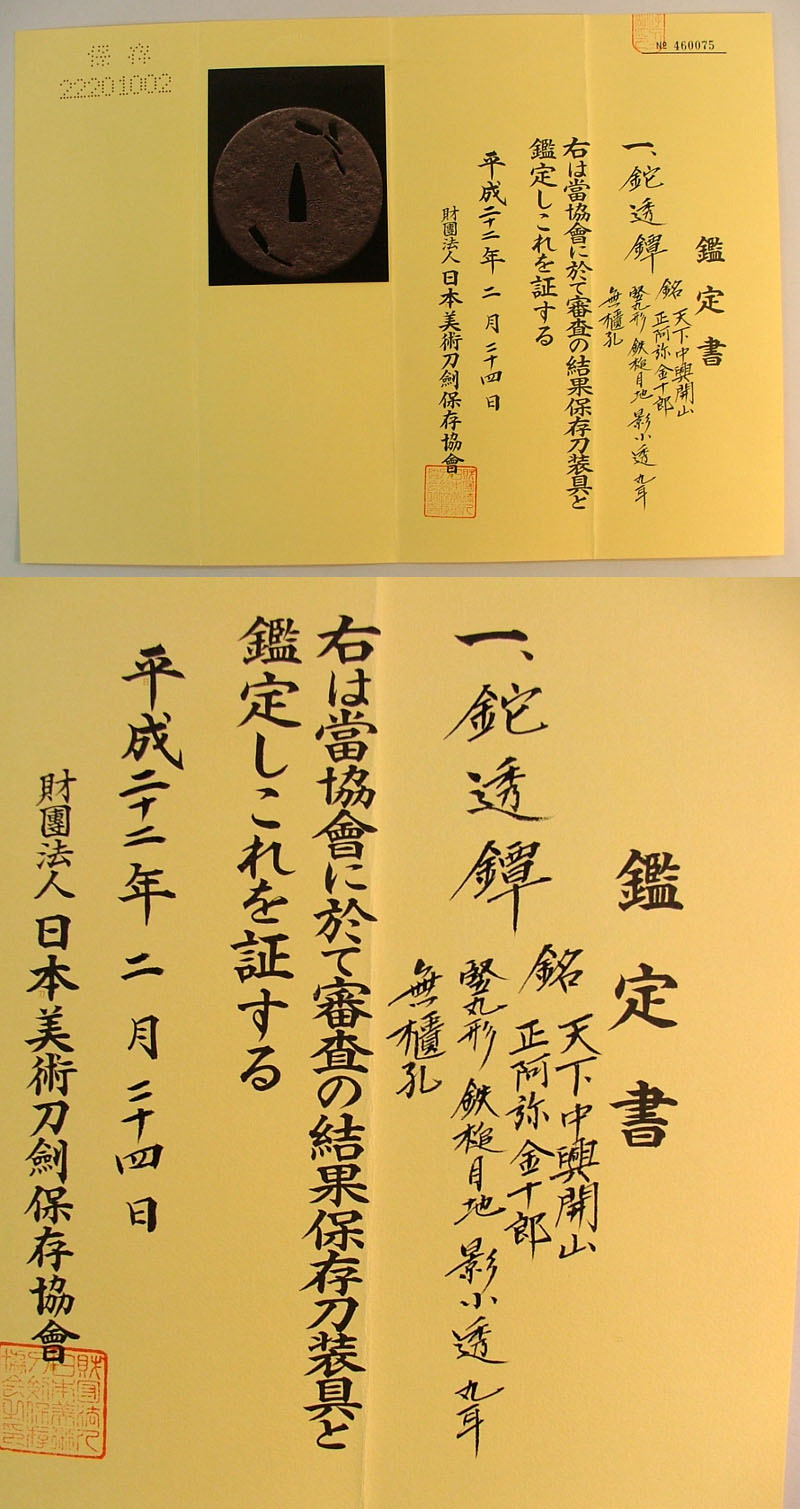 保存
22201002
№ 460075
鑑定書
一、鉈透鐔
銘 天下中興開山
正阿弥金十郎
竪丸形 鉄槌目地 影小透 丸耳
無櫃孔
右は當協會に於て審査の結果保存刀装具と
鑑定しこれを証する
平成二十二年 二 月 二十四日
財團法人 日本美術刀劍保存協會
鑑定書
一、鉈透鐔
銘 天下中興開山
正阿弥金十郎
竪丸形 鉄槌目地 影小透 丸耳
無櫃孔
右は當協會に於て審査の結果保存刀装具と
鑑定しこれを証する
平成二十二年 二 月 二十四日
財團法人 日本美術刀劍保存協會